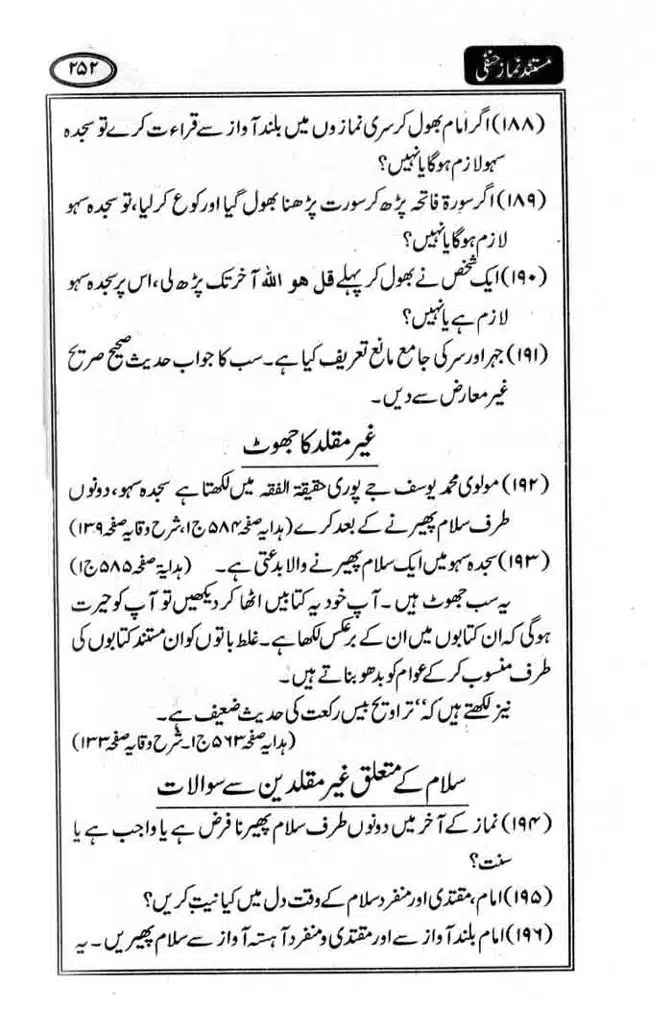 مستند نماز حنفی
۲۵۲
(۱۸۸) اگر امام بھول کر سری نمازوں میں بلند آواز سے قراءت کرے تو سجدہ
سہو لازم ہوگا یا نہیں؟
(۱۸۹) اگر سورۃ فاتحہ پڑھ کر سورت پڑھنا بھول گیا اور رکوع کر لیا، تو سجدہ سہو
لازم ہوگا یا نہیں؟
(۱۹۰) ایک شخص نے بھول کر پہلے قل هو الله آخر تک پڑھ لی، اس پر سجدہ سہو
لازم ہے یا نہیں؟
(۱۹۱) جہر اور سر کی جامع مانع تعریف کیا ہے۔ سب کا جواب حدیث صحیح صریح
غیر معارض سے دیں۔
غیر مقلد کا جھوٹ
(۱۹۲) مولوی محمد یوسف جے پوری حقیقۃ الفقہ میں لکھتا ہے سجدہ سہو، دونوں
طرف سلام پھیرنے کے بعد کرے (ہدایہ صفحہ ۵۸۴ ج۱، شرح وقایہ صفحہ ۱۳۹)
(۱۹۳) سجدہ سہو میں ایک سلام پھیرنے والا بدعتی ہے۔ (ہدایۃ صفحہ ۵۸۵ ج۱)
یہ سب جھوٹ ہیں۔ آپ خود یہ کتابیں اٹھا کر دیکھیں تو آپ کو حیرت
ہوگی کہ ان کتابوں میں ان کے برعکس لکھا ہے۔ غلط باتوں کو ان مستند کتابوں کی
طرف منسوب کر کے عوام کو بدھو بناتے ہیں۔
نیز لکھتے ہیں کہ ‘‘تراویح بیس رکعت کی حدیث ضعیف ہے۔
(ہدایہ صفحہ ۵۶۳ ج۱۔ شرح وقایہ صفحہ ۱۳۳)
سلام کے متعلق غیر مقلدین سے سوالات
(۱۹۴) نماز کے آخر میں دونوں طرف سلام پھیرنا فرض ہے یا واجب ہے یا
سنت؟
(۱۹۵) امام، مقتدی اور منفرد سلام کے وقت دل میں کیا نیت کریں؟
(۱۹۶) امام بلند آواز سے اور مقتدی و منفرد آہستہ آواز سے سلام پھیریں۔ یہ